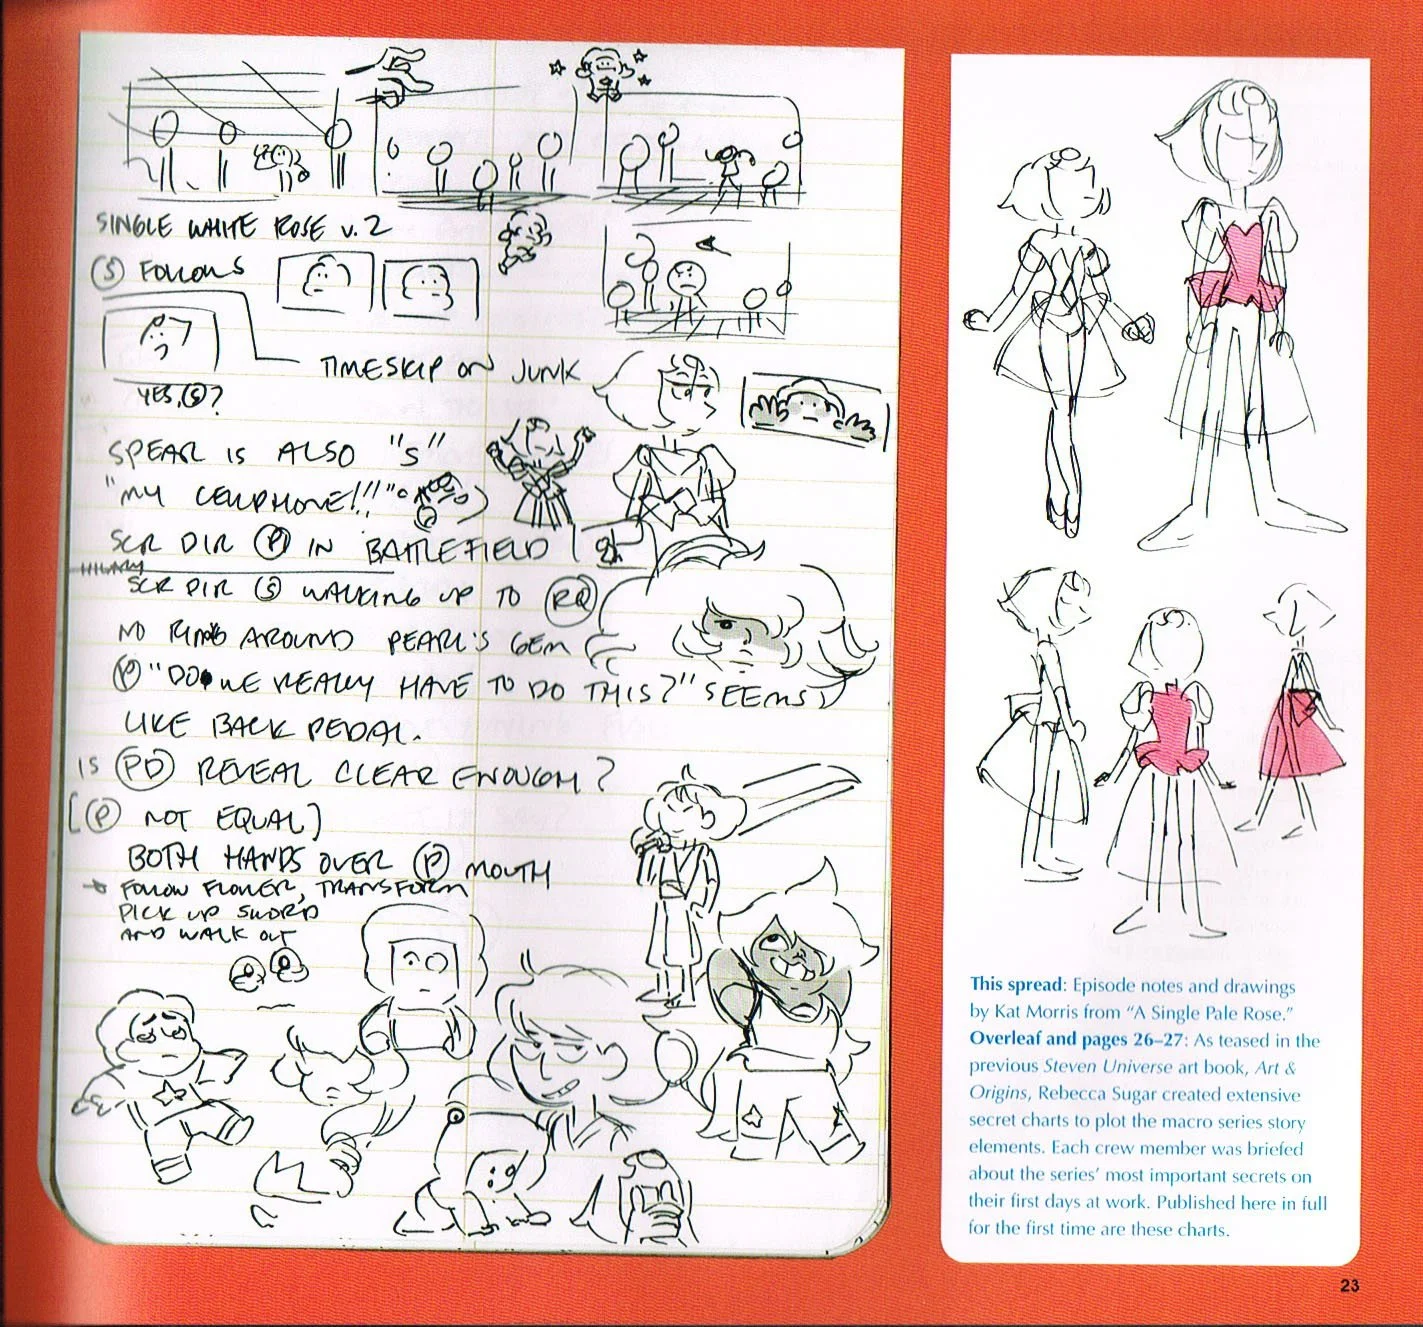 SINGLE WHITE ROSE v. 2
Ⓢ FOLLOWS
TIMESKIP ON JUNK
YES, Ⓢ?
SPEAR IS ALSO "S"
"MY CELLPHONE!!!"
SCR DIR Ⓟ IN BATTLEFIELD
HILARY
SCR DIR Ⓢ WALKING UP TO RQ
NO RING AROUND PEARL'S GEM
Ⓟ "DO WE REALLY HAVE TO DO THIS?" SEEMS
LIKE BACK PEDAL.
IS PD REVEAL CLEAR ENOUGH?
[Ⓟ NOT EQUAL]
BOTH HANDS OVER Ⓟ MOUTH
FOLLOW FLOWER, TRANSFORM
PICK UP SWORD
AND WALK OUT
This spread: Episode notes and drawings
by Kat Morris from “A Single Pale Rose.”
Overleaf and pages 26–27: As teased in the
previous Steven Universe art book, Art &
Origins, Rebecca Sugar created extensive
secret charts to plot the macro series story
elements. Each crew member was briefed
about the series’ most important secrets on
their first days at work. Published here in full
for the first time are these charts.
23